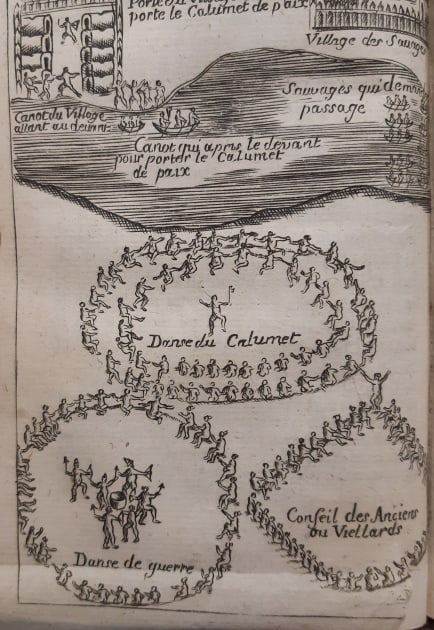 Porte du
porte le Calumet de paix
Village des Sauvages
Sauvages qui
passage
Canot du Village
allant au devant
Canot qui apres le devant
pour porter le Calumet
de paix
Danse du Calumet
Danse de guerre
Conseil des Anciens
ou Viellards